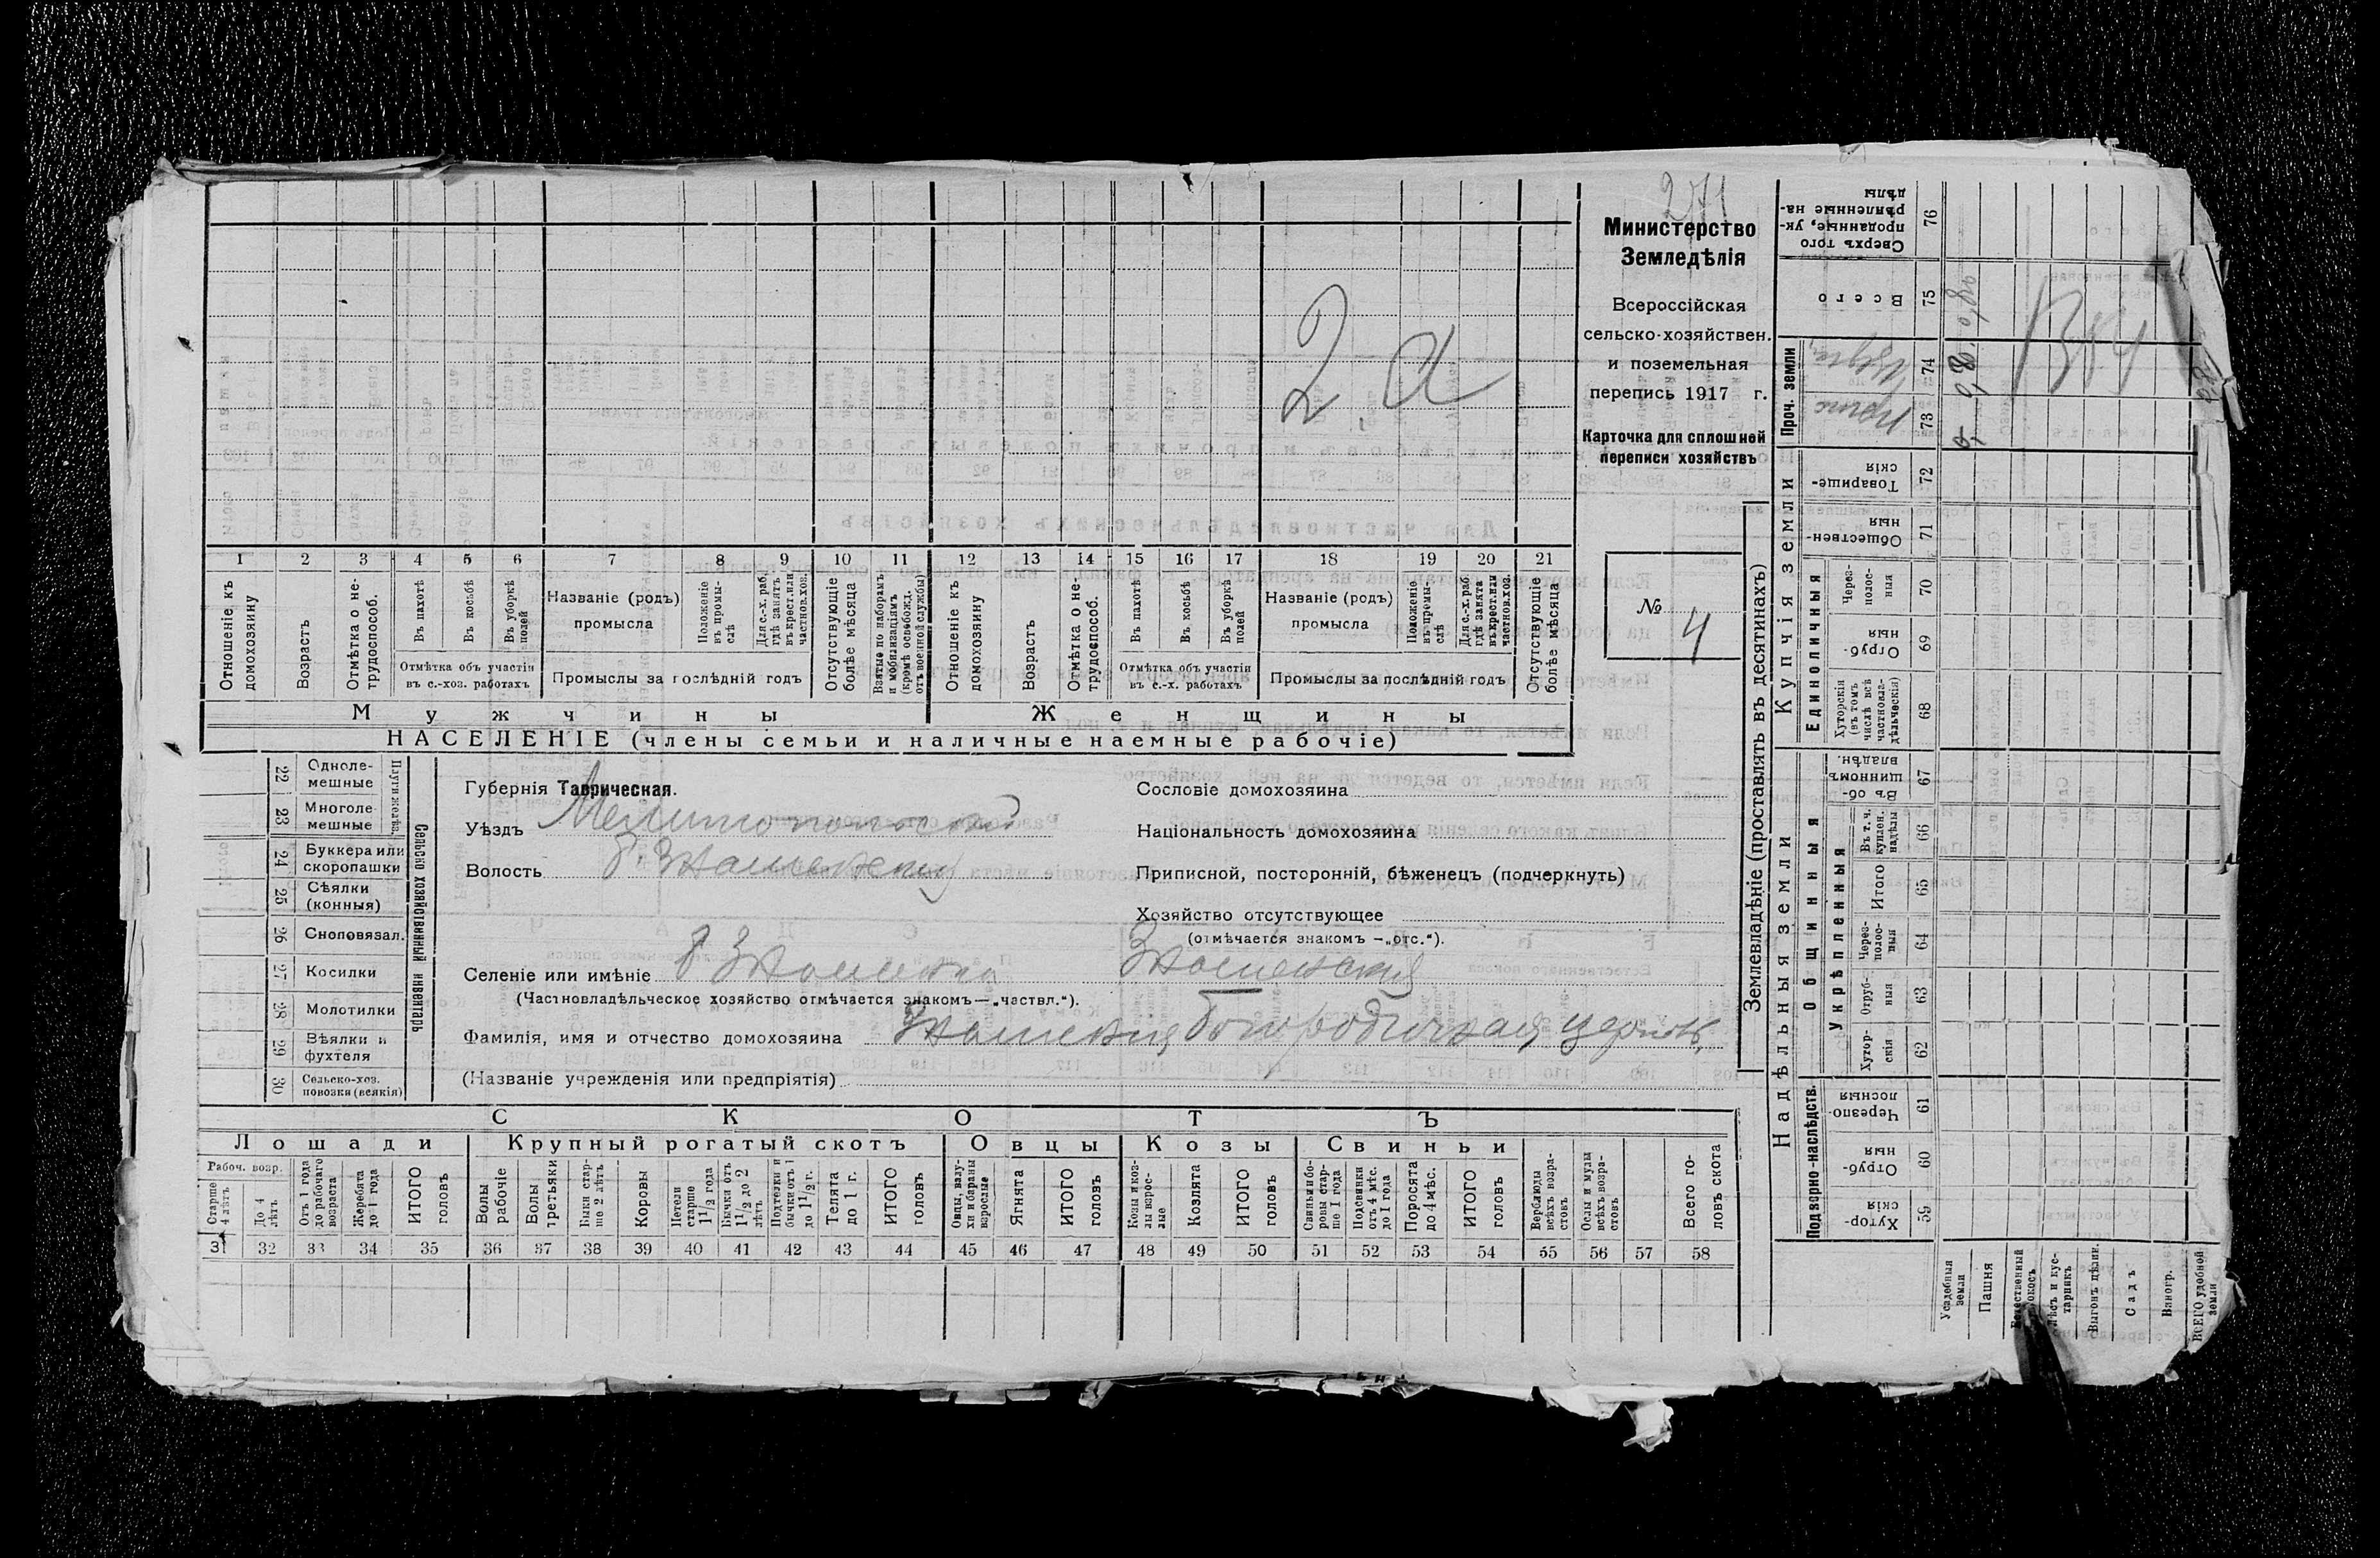 271
Министерство
Земледѣлія
Всероссійская
сельско-хозяйствен.
и поземельная
перепись 1917 г.
Карточка для сплошной
переписи хозяйствъ
№ 4
2. а
1 2 3 4 5 6 7 8 9 10 11 12 13 14 15 16 17 18 19 20 21
Отношеніе къ домохозяину
Возрасть
Отмѣтка о не-трудоспособ.
Въ пахотѣ
Въ косьбѣ
Въ уборкѣ полей
Отмѣтка объ участіи въ с.-хоз. работахъ
Названіе (родъ) промысла
Положеніе въ промы-слѣ
Для с.-х. раб. гдѣ занятъ въ крест. или частнов. хоз.
Промыслы за послѣдній годъ
Отсутствующіе болѣе мѣсяца
Взятые по наборамъ и мобилизаціямъ (кромѣ освобожд. отъ военной службы)
Отношеніе къ домохозяину
Возрастъ
Отмѣтка о не-трудоспособ.
Въ пахотѣ
Въ косьбѣ
Въ уборкѣ полей
Отмѣтка объ участіи въ с.-х. работахъ
Названіе (родъ) промысла
Положеніе въ премы-слѣ
Для с.-х. раб. гдѣ занята въ крест. или частнов. хоз.
Промыслы за послѣдній годъ
Отсутствующіе болѣе мѣсяца
Мужчины
Женщины
НАСЕЛЕНІЕ (члены семьи и наличные наемные рабочіе)
Сельско хозяйственный инвентарь
Плуги желѣз.
22 Одноле-мешные
23 Многоле-мешные
24 Буккера или скоропашки
25 Сѣялки (конныя)
26 Сноповязал.
27 Косилки
28 Молотилки
29 Вѣялки и фухтеля
30 Сельско-хоз. повозки (всякія)
Губернія Таврическая.
Уѣздъ Мелитопольский
Волость Б. Знаменская
Селеніе или имѣніе Б Знаменка Знаменская
(Частновладѣльческое хозяйство отмѣчается знакомъ — „частвл.“).
Фамилія, имя и отчество домохозяина Знаменская Богородичная церковь
(Названіе учрежденія или предпріятія)
Сословіе домохозяина
Національность домохозяина
Приписной, посторонній, бѣженецъ (подчеркнуть)
Хозяйство отсутствующее
(отмѣчается знакомъ — „отс.“).
СКОТЪ
Лошади
Крупный рогатый скотъ
Овцы
Козы
Свиньи
Рабоч. возр.
Старше 4 лѣтъ
До 4 лѣтъ
Отъ 1 года до рабочаго возраста
Жеребята до 1 года
ИТОГО головъ
Волы рабочіе
Волы третьяки
Быки стар-ше 2 лѣтъ
Коровы
Нетели старше 1 1/2 года
Бычки отъ 1 1/2 до 2 лѣтъ
Подтелки и бычки отъ 1 до 1 1/2 г.
Телята до 1 г.
ИТОГО головъ
Овцы, валу-хи и бараны взрослые
Ягнята
ИТОГО головъ
Козы и коз-лы взрос-лые
Козлята
ИТОГО головъ
Свиньи и бо-ровы стар-ше 1 года
Подсвинки отъ 4 мѣс. до 1 года
Поросята до 4 мѣс.
ИТОГО головъ
Верблюды всѣхъ возра-стовъ
Ослы и мулы всѣхъ возра-стовъ
Всего го-ловъ скота
31 32 33 34 35 36 37 38 39 40 41 42 43 44 45 46 47 48 49 50 51 52 53 54 55 56 57 58
Землевладѣніе (проставлять въ десятинахъ)
Надѣльныя земли
Купчія земли
Проч. земли
Подворно-наслѣдств.
Общинныя
Укрѣпленныя
Единоличныя
Сверхъ того проданные, ук-рѣпленные на-дѣлы 76
Всего 75
74
73
Товарище-скія 72
Обществен-ныя 71
Через-полос-ныя 70
Отруб-ныя 69
Хуторскія (въ томъ числѣ всѣ частновла-дѣльческія) 68
Въ об-щинномъ владѣн. 67
Въ т. ч. куплен. надѣлы 66
Итого 65
Через-полос-ныя 64
Отруб-ныя 63
Хутор-скія 62
Черезпо-лосныя 61
Отруб-ныя 60
Хутор-скія 59
Усадебныя земли
Пашня
Естественный покосъ
Лѣсъ и кус-тарникъ
Выгонъ цѣлин.
Садъ
Виногр.
ВСЕГО удобной земли